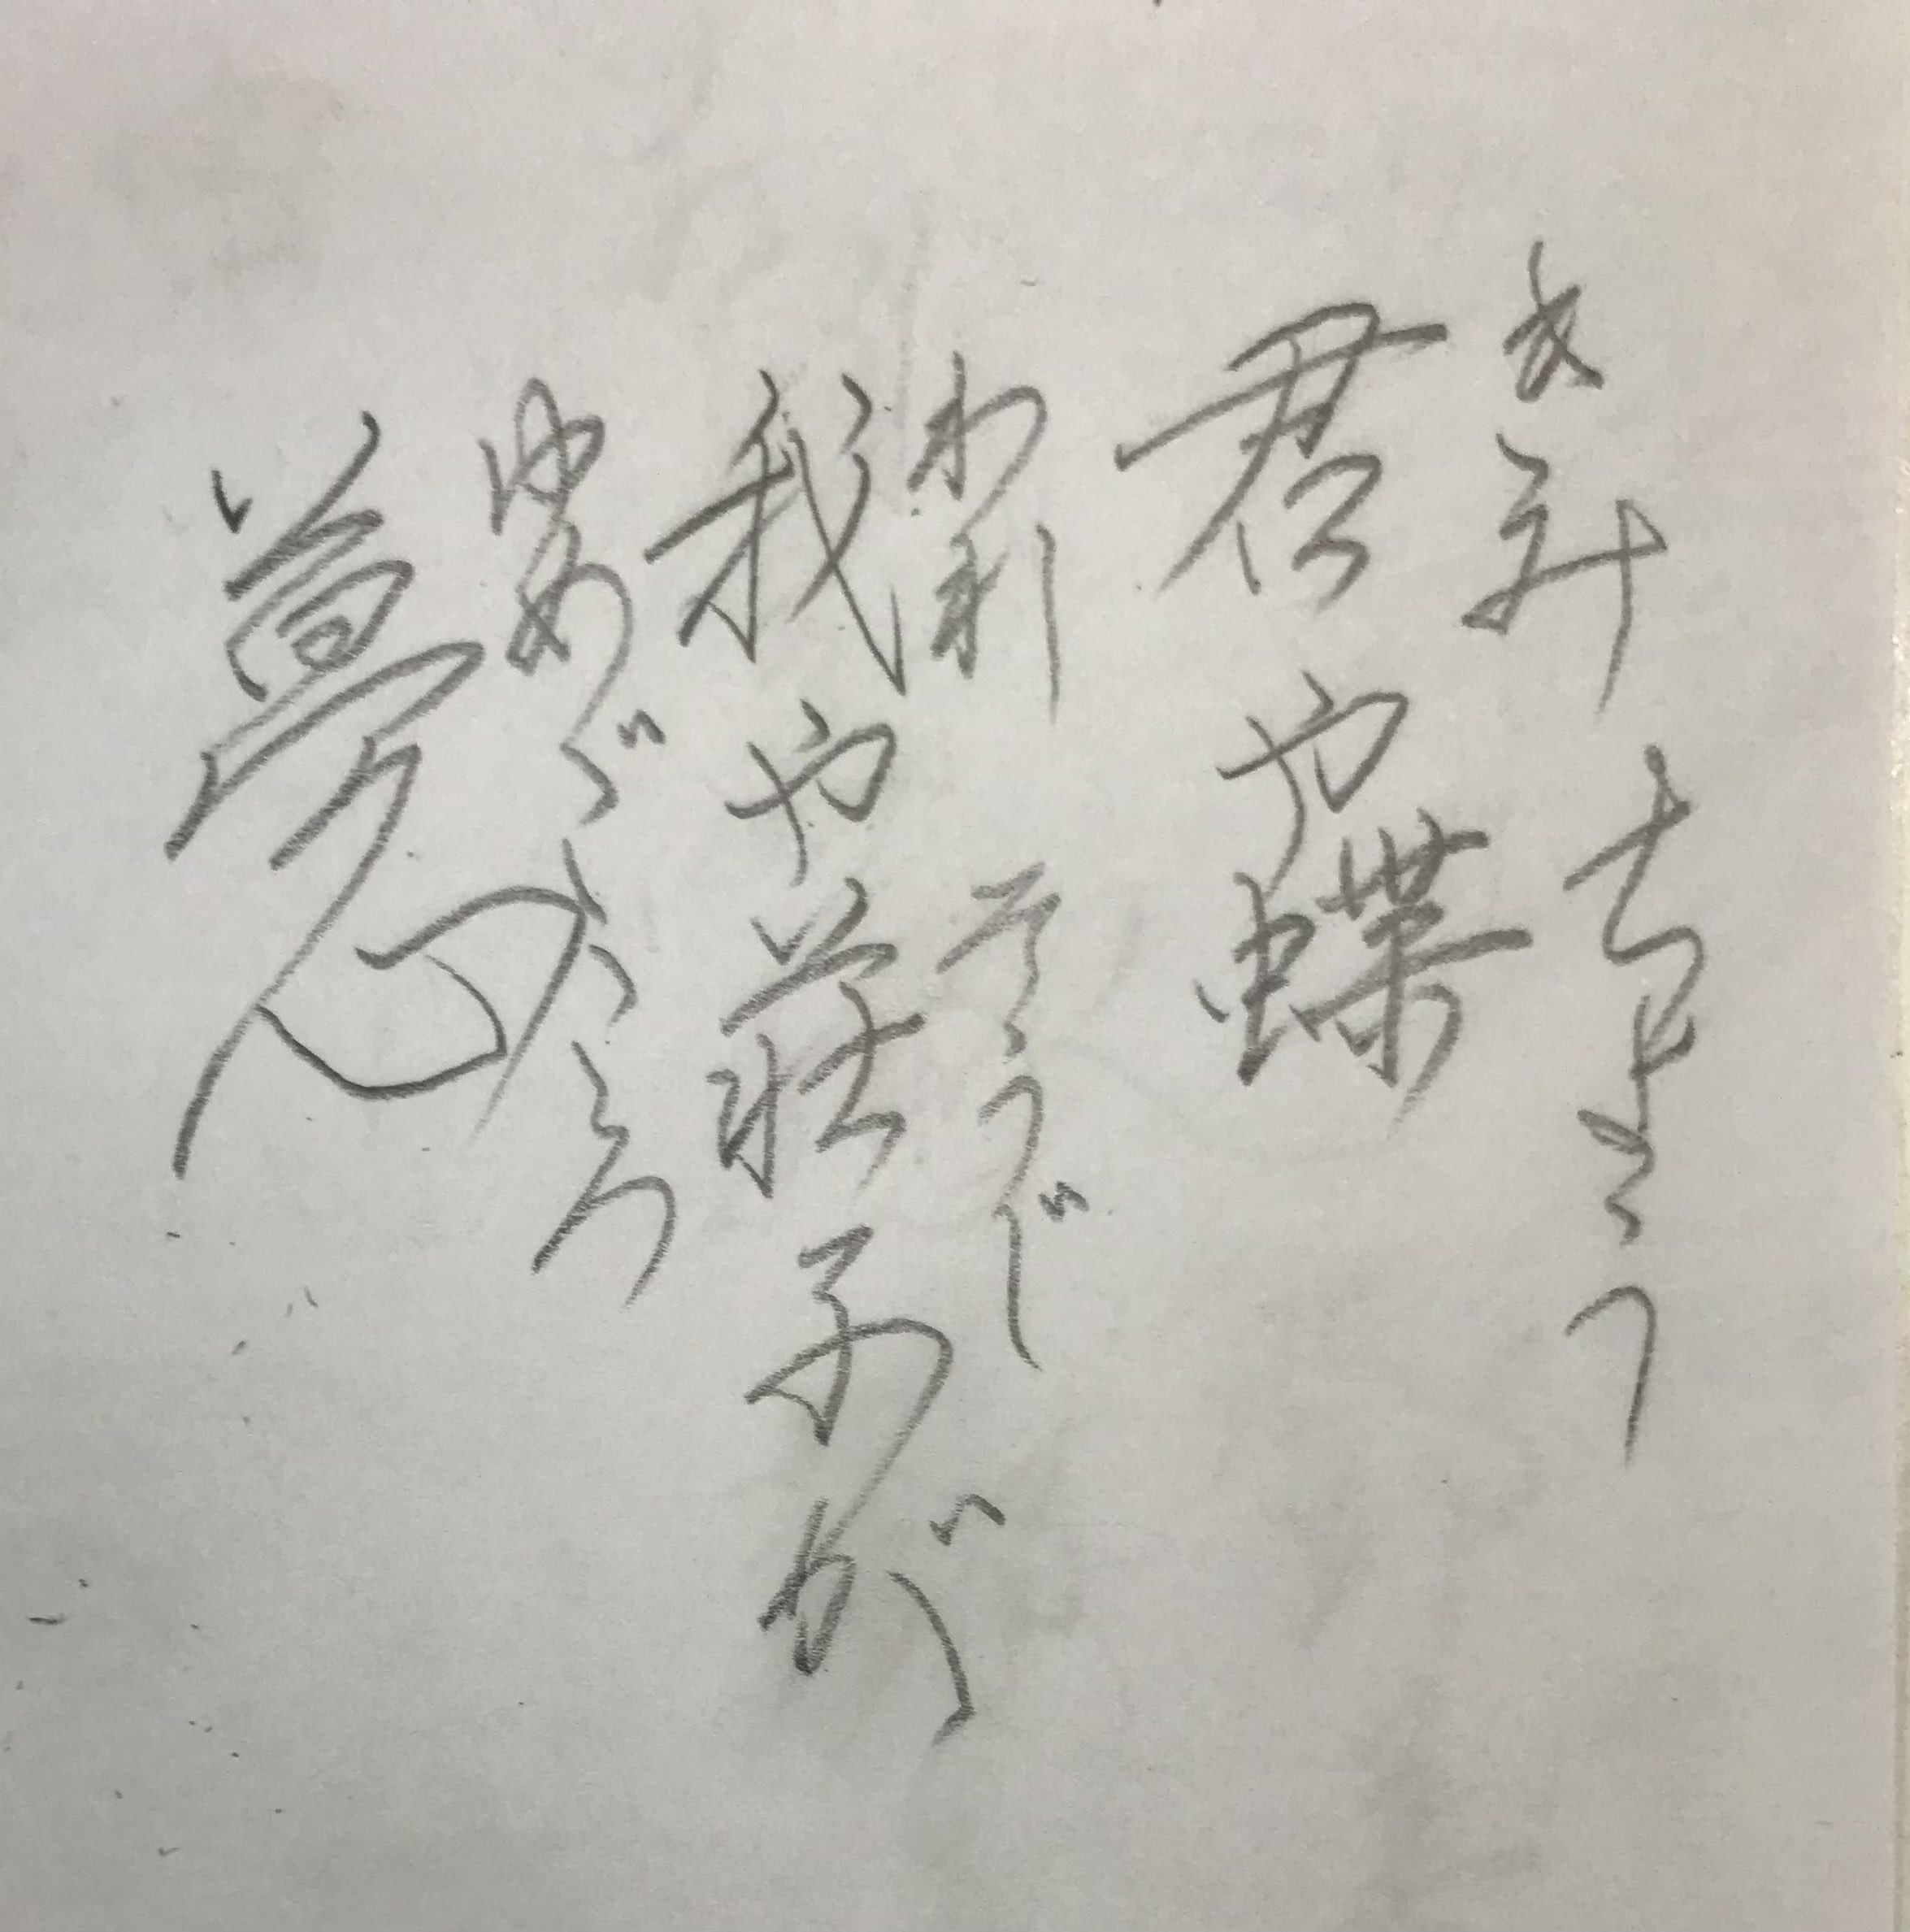 きみ ちょう
君や蝶
われ そうじ
我や荘子が
ゆめごころ
夢心